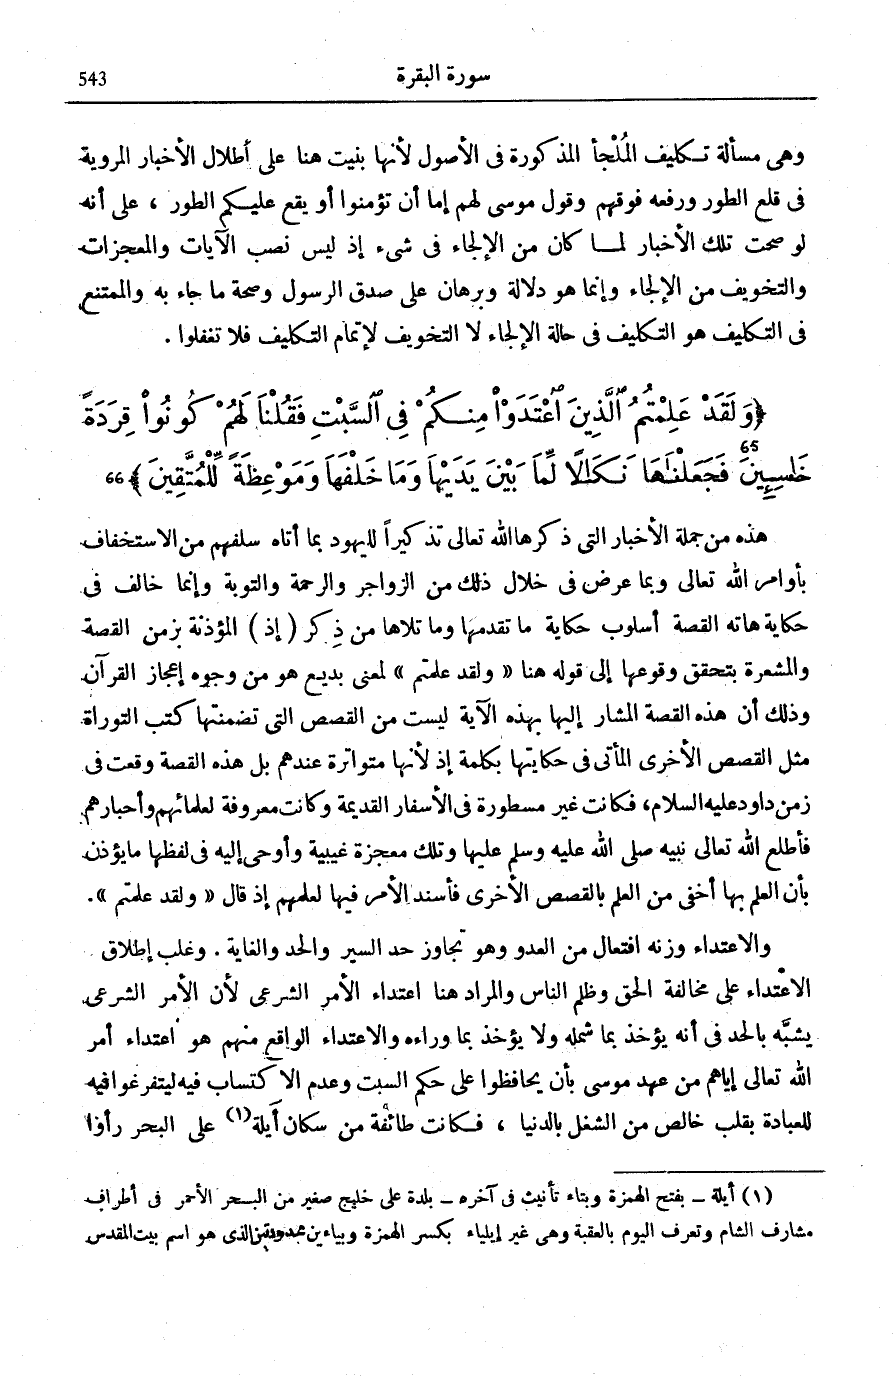 543 سورة البقرة
وهى مسألة تـكليف المُلْجأ المذكورة فى الأصول لأنها بنيت هنا على أطلال الأخبار المروية
فى قلع الطور ورفعه فوقهم وقول موسى لهم إما أن تؤمنوا أو يقع عليـكم الطور ، على أنه
لو صحت تلك الأخبار لمـا كان من الإلجاء فى شىء إذ ليس نصب الآيات والمعجزات
والتخويف من الإلجاء وإنما هو دلالة وبرهان على صدق الرسول وصحة ما جاء به والممتنع
فى التكليف هو التكليف فى حالة الإلجاء لا التخويف لإتمام التكليف فلا تغفلوا .
﴿وَلَقَدْ عَلِمْتُمُ ٱلَّذِينَ ٱعْتَدَوْاْ مِنـكُمْ فِى ٱلسَّبْتِ فَقُلْنَا لَهُمْ كُونُواْ قِرَدَةً
خَٰسِـِٕينَ 65 فَجَعَلْنَٰهَا نَكَٰلًا لِّمَا بَيْنَ يَدَيْهَا وَمَا خَلْفَهَا وَمَوْعِظَةً لِّلْمُتَّقِينَ ﴾ 66
هذه من جملة الأخبار التى ذكرها الله تعالى تذكيراً لليهود بما أتاه سلفهم من الاستخفاف
بأوامر الله تعالى وبما عرض فى خلال ذلك من الزواجر والرحمة والتوبة وإنما خالف فى
حكاية هاته القصة أسلوب حكاية ما تقدمها وما تلاها من ذِكر ( إذ ) المؤذنة بزمن القصة
والمشعرة بتحقق وقوعها إلى قوله هنا « ولقد علمتم » لمعنى بديع هو من وجوه إعجاز القرآن
وذلك أن هذه القصة المشار إليها بهذه الآية ليست من القصص التى تضمنتها كتب التوراة
مثل القصص الأخرى المأتى فى حكايتها بكلمة إذ لأنها متواترة عندهم بل هذه القصة وقعت فى
زمن داود عليه السلام، فكانت غير مسطورة فى الأسفار القديمة وكانت معروفة لعلمائهم وأحبارهم
فأطلع الله تعالى نبيه صلى الله عليه وسلم عليها وتلك معجزة غيبية وأوحى إليه فى لفظها ما يؤذن
بأن العلم بها أخفى من العلم بالقصص الأخرى فأسند الأمر فيها لعلمهم إذ قال « ولقد علمتم ».
والاعتداء وزنه افتعال من العدو وهو تجاوز حد السير والحد والغاية . وغلب إطلاق
الاعتداء على مخالفة الحق وظلم الناس والمراد هنا اعتداء الأمر الشرعى لأن الأمر الشرعى
يشبَّه بالحد فى أنه يؤخذ بما شمله ولا يؤخذ بما وراءه والاعتداء الواقع منهم هو اعتداء أمر
الله تعالى إياهم من عهد موسى بأن يحافظوا على حكم السبت وعدم الاكتساب فيه ليتفرغوا فيه
للعبادة بقلب خالص من الشغل بالدنيا ، فـكانت طائفة من سكان أيلة(١) على البحر رأوا
(١) أيلة ــ بفتح الهمزة وبتاء تأنيث فى آخره ــ بلدة على خليج صغير من البـحر الأحمر فى أطراف
مشارف الشام وتعرف اليوم بالعقبة وهى غير إيلياء بكسر الهمزة وبياءين ممدودين الذى هو اسم بيت المقدس